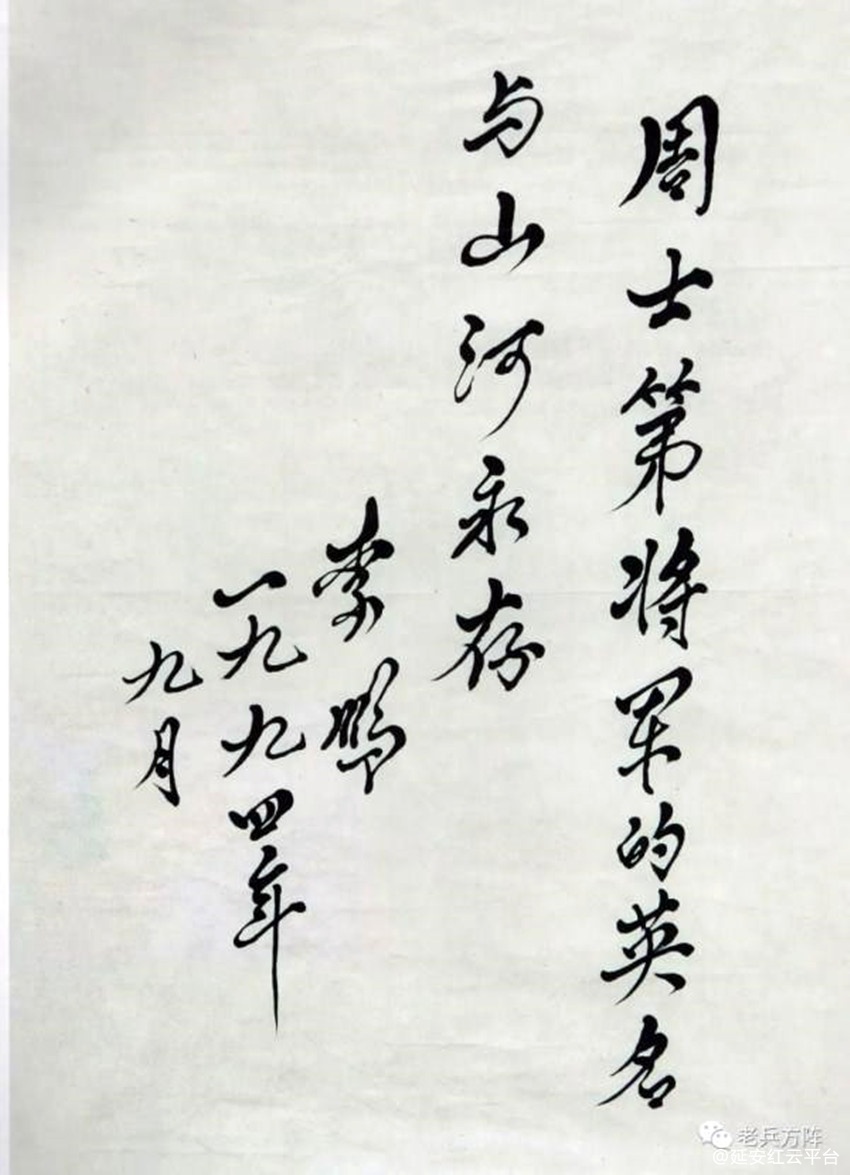 周士第将军的英名
与山河永存
李鹏
一九九四年
九月
老兵方阵
@延安红云平台